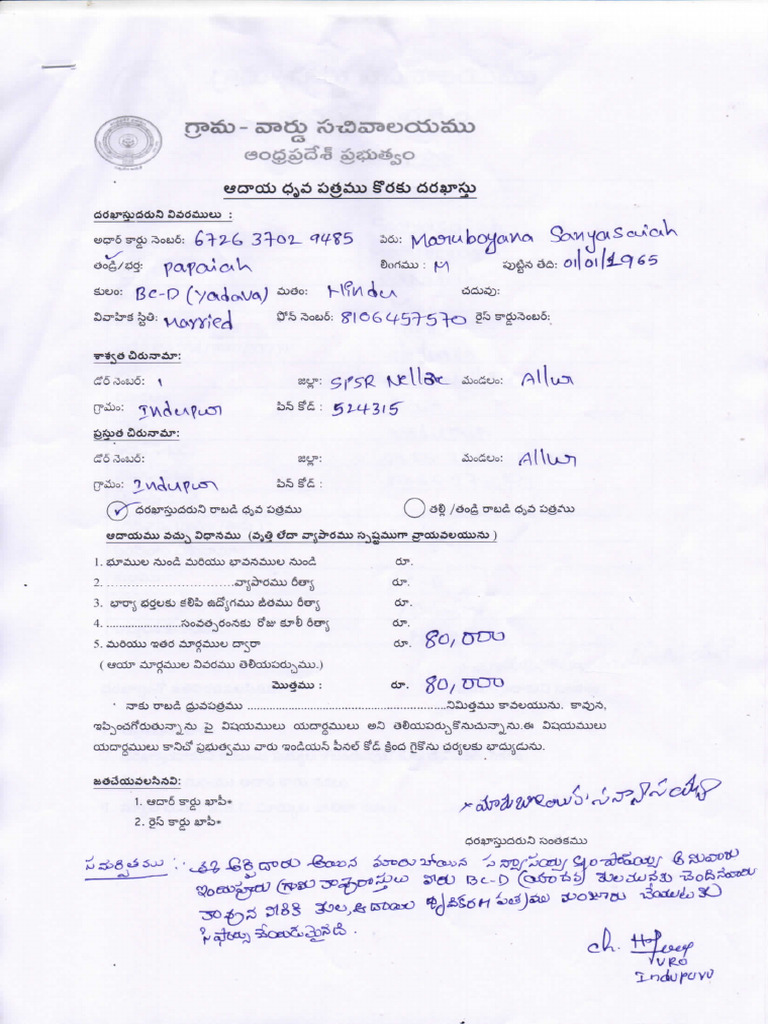 గ్రామ - వార్డు సచివాలయము
ఆంధ్రప్రదేశ్ ప్రభుత్వం
ఆదాయ ధృవ పత్రము కొరకు దరఖాస్తు
దరఖాస్తుదరుని వివరములు :
అధార్ కార్డు నెంబర్: 6726 3702 9485 పేరు: Maruboyana Sanyasaiah
తండ్రి/భర్త: papaiah లింగము : M పుట్టిన తేది: 01/01/1965
కులం: BC-D (Yadava) మతం: Hindu చదువు:
వివాహిక స్టితి: Married ఫోన్ నెంబర్: 8106457570 రైస్ కార్డునెంబర్:
శాశ్వత చిరునామా:
డోర్ నెంబర్: 1 జల్లా: SPSR Nellore మండలం: Allur
గ్రామం: Indupur పిన్ కోడ్ : 524315
ప్రస్తుత చిరునామా:
డోర్ నెంబర్: జల్లా: మండలం: Allur
గ్రామం: Indupur పిన్ కోడ్ :
దరఖాస్తుదరుని రాబడి ధృవ పత్రము తల్లి /తండ్రి రాబడి ధృవ పత్రము
ఆదాయము వచ్చు విధానము (వృత్తి లేదా వ్యాపారము స్పష్టముగా వ్రాయవలయును )
1. భూముల నుండి మరియు భావనముల నుండి రూ.
2. ..............................వ్యాపారము రీత్యా రూ.
3. భార్యా భర్తలకు కలిపి ఉద్యోగము జీతము రీత్యా రూ.
4. ......................సంవత్సరంనకు రోజు కూలీ రీత్యా రూ.
5. మరియు ఇతర మార్గముల ద్వారా రూ. 80,000
( ఆయా మార్గముల వివరము తెలియపర్చుము.)
మొత్తము : రూ. 80,000
నాకు రాబడి ధ్రువపత్రము ..........................................................నిమిత్తము కావలయును. కావున,
ఇప్పించగోరుతున్నాను పై విషయములు యదార్ధములు అని తెలియపర్చుకొనుచున్నాను.ఈ విషయములు
యదార్ధములు కానిచో ప్రభుత్వము వారు ఇండియన్ పీనల్ కోడ్ క్రింద గైకొను చర్యలకు భాద్యుడును.
జతచేయవలసినవి:
1. ఆదార్ కార్డు ఖాపీ*
2. రైస్ కార్డు ఖాపీ*
x మారుబోయిన సన్యాసయ్య
ధరఖాస్తుదరుని సంతకము
సమర్పితము : ఈ అర్జిదారు అయిన మారుబోయిన సన్యాసయ్య అనువారు
ఇందుపూరు గ్రామ కాపురస్తులు వీరు BC-D (యాదవ) కులమునకు చెందినవారు
కావున వీరికి కుల, ఆదాయ పత్రము మంజూరు చేయుటకు
సిఫార్సు చేయడమైనది.
ch.
VRO
Indupuru